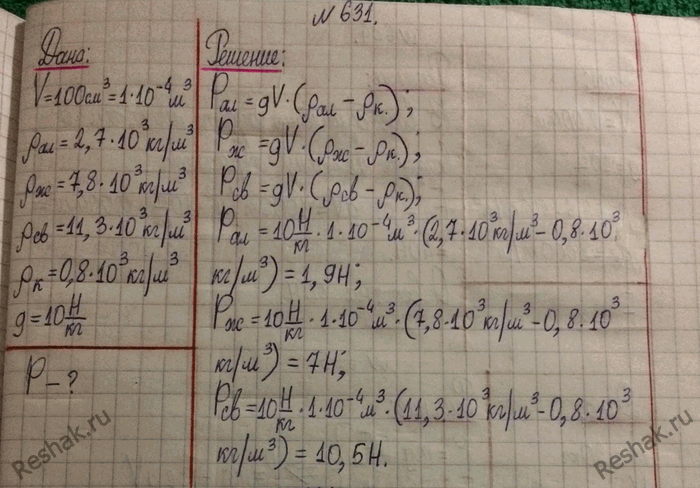 №631.
Дано:
V=100см³=1·10⁻⁴м³
ρал=2,7·10³кг/м³
ρж=7,8·10³кг/м³
ρсв=11,3·10³кг/м³
ρк=0,8·10³кг/м³
g=10 Н/кг
P-?
Решение:
Pал=gV·(ρал-ρк.);
Pж=gV·(ρж-ρк.);
Pсв=gV·(ρсв-ρк.);
Pал=10 Н/кг·1·10⁻⁴м³·(2,7·10³кг/м³-0,8·10³
кг/м³)=1,9Н;
Pж=10 Н/кг·1·10⁻⁴м³·(7,8·10³кг/м³-0,8·10³
кг/м³)=7Н;
Pсв=10 Н/кг·1·10⁻⁴м³·(11,3·10³кг/м³-0,8·10³
кг/м³)=10,5Н.
Reshak.ru
Reshak.ru